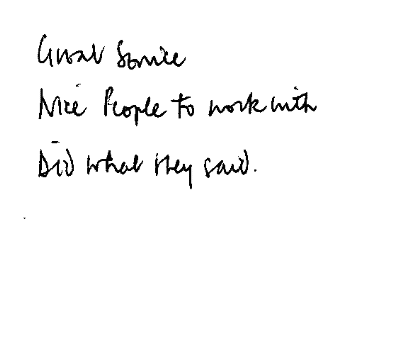 Great Service
Nice People to work with
Did what they said.